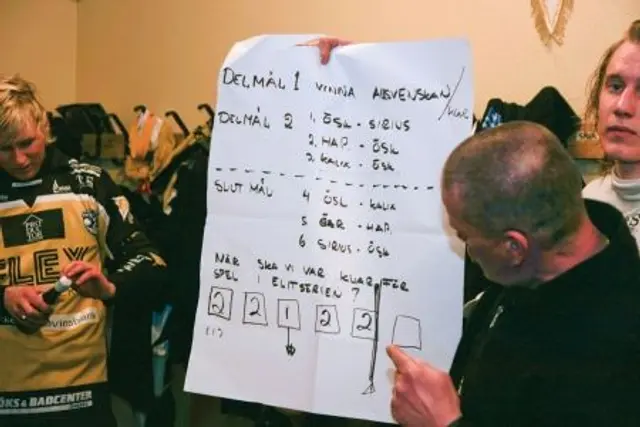 DELMÅL 1 VINNA ALLSVENSKAN/KLAR
DELMÅL 2 1. ÖSK - SIRIUS
2. HAP. - ÖSK
3. KALIX - ÖSK
SLUT MÅL 4 ÖSK - KALIX
5 ÖSK - HAP.
6 SIRIUS - ÖSK
NÄR SKA VI VAR KLAR FÖR
SPEL I ELITSERIEN ?
2 2 1 2 2
FLEX
ÖKS & BADCENTER